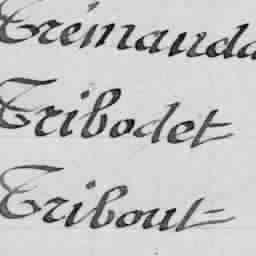 Trémauda
Tribodet
Tribout=